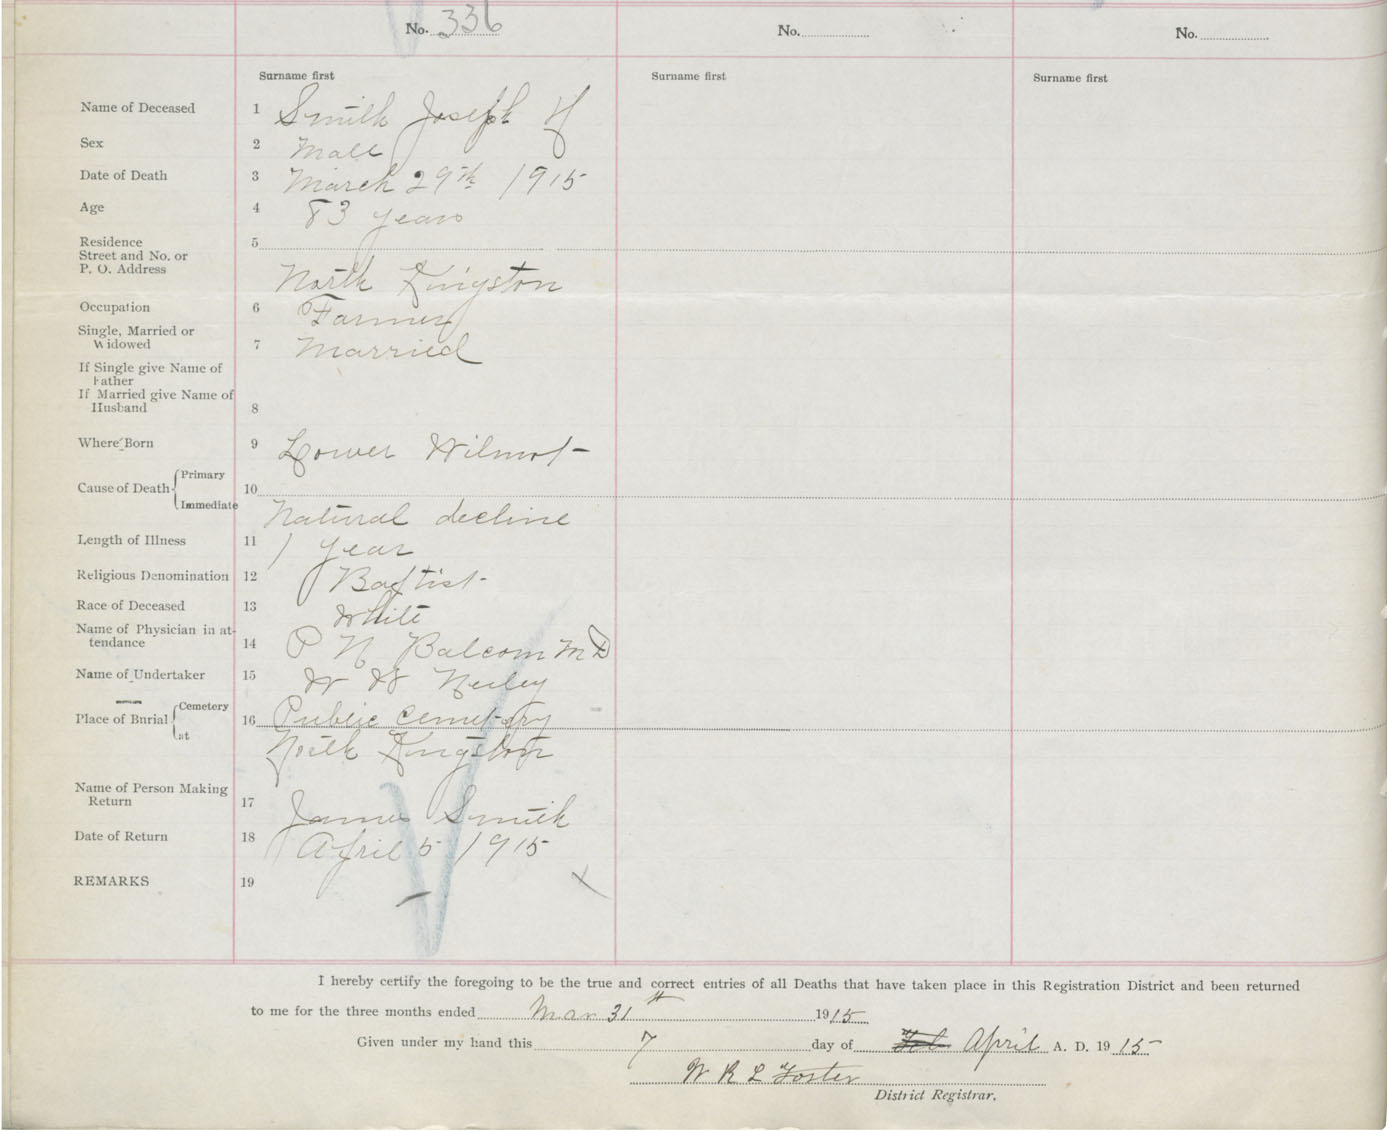 No. 336 No. No.
Surname first Surname first Surname first
Name of Deceased 1 Smith Joseph H
Sex 2 Male
Date of Death 3 March 29th 1915
Age 4 83 years
Residence 5
Street and No. or
P. O. Address
North Kingston
Occupation 6 Farmer
Single, Married or
Widowed 7 Married
If Single give Name of
Father
If Married give Name of
Husband 8
Where Born 9 Lower Wilmot
Primary
Cause of Death 10
Immediate
Natural decline
Length of Illness 11 1 year
Religious Denomination 12 Baptist
Race of Deceased 13 White
Name of Physician in at-
tendance 14 P N Balcom M D
Name of Undertaker 15 W W
Cemetery
Place of Burial 16 Public Cemetery
at
North Kingston
Name of Person Making
Return 17 James Smith
Date of Return 18 April 5 1915
REMARKS 19
I hereby certify the foregoing to be the true and correct entries of all Deaths that have taken place in this Registration District and been returned
to me for the three months ended Mar 31st 1915
Given under my hand this 7 day of Feb April A. D. 1915
W R L Foster
District Registrar.